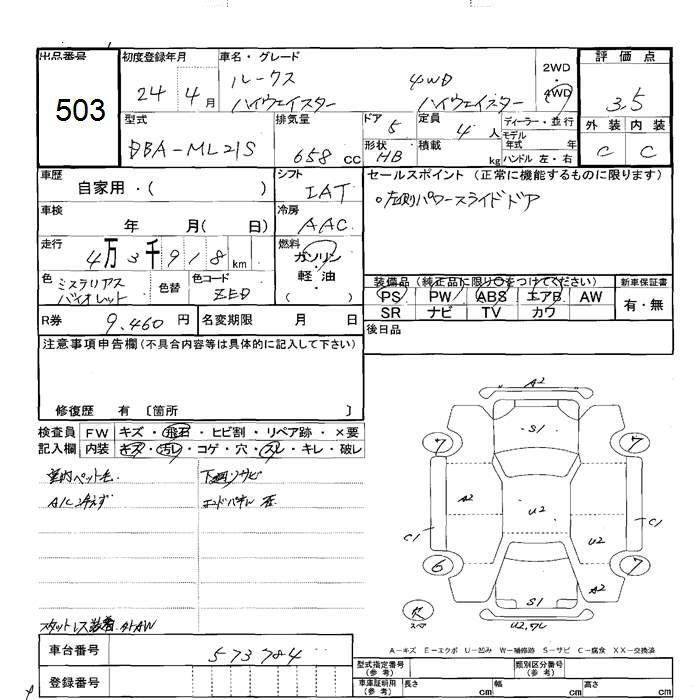 出品番号
503
初度登録年月
24 4月
車名・グレード
ルークス 4WD
ハイウェイスター ハイウェイスター
2WD
4WD
評価点
3.5
外装 内装
C C
型式
DBA-ML21S
排気量
658 cc
ドア
5
定員
4人
ディーラー・並行
モデル
年式 年
ハンドル 左・右
形状
HB
積載
kg
車歴
自家用・( )
シフト
IAT
セールスポイント (正常に機能するものに限ります)
○左側パワースライドドア
車検
年 月( 日)
冷房
AAC
走行
4万3千918km
燃料
ガソリン
軽・油
( )
色
ミステリアス
バイオレット
色替
色コード
ZED
装備品(純正品に限り○をつけてください)
PS PW ABS エアB AW
SR ナビ TV カワ
新車保証書
有・無
R券
9,460円
名変期限 月 日
後日品
注意事項申告欄(不具合内容等は具体的に記入して下さい)
修復歴 有 〔箇所 〕
検査員 FW キズ・飛石・ヒビ割・リペア跡・×要
記入欄 内装 キズ・汚レ・コゲ・穴・スレ・キレ・破レ
室内ペット毛 下廻りサビ
A/C冷えず エンドパネル 歪
スタットレス装着 外AW
A2
S1
7 7
A2 U2 U2
C1 C1
6 7
A2
S1
スペア
U2,ワレ
A-キズ E-エクボ U-凹み W-補修跡 S-サビ C-腐食 XX-交換済
車台番号
573784
登録番号
型式指定番号
(参考)
類別区分番号
(参考)
車庫証明用
(参考)
長さ cm 幅 cm 高さ cm